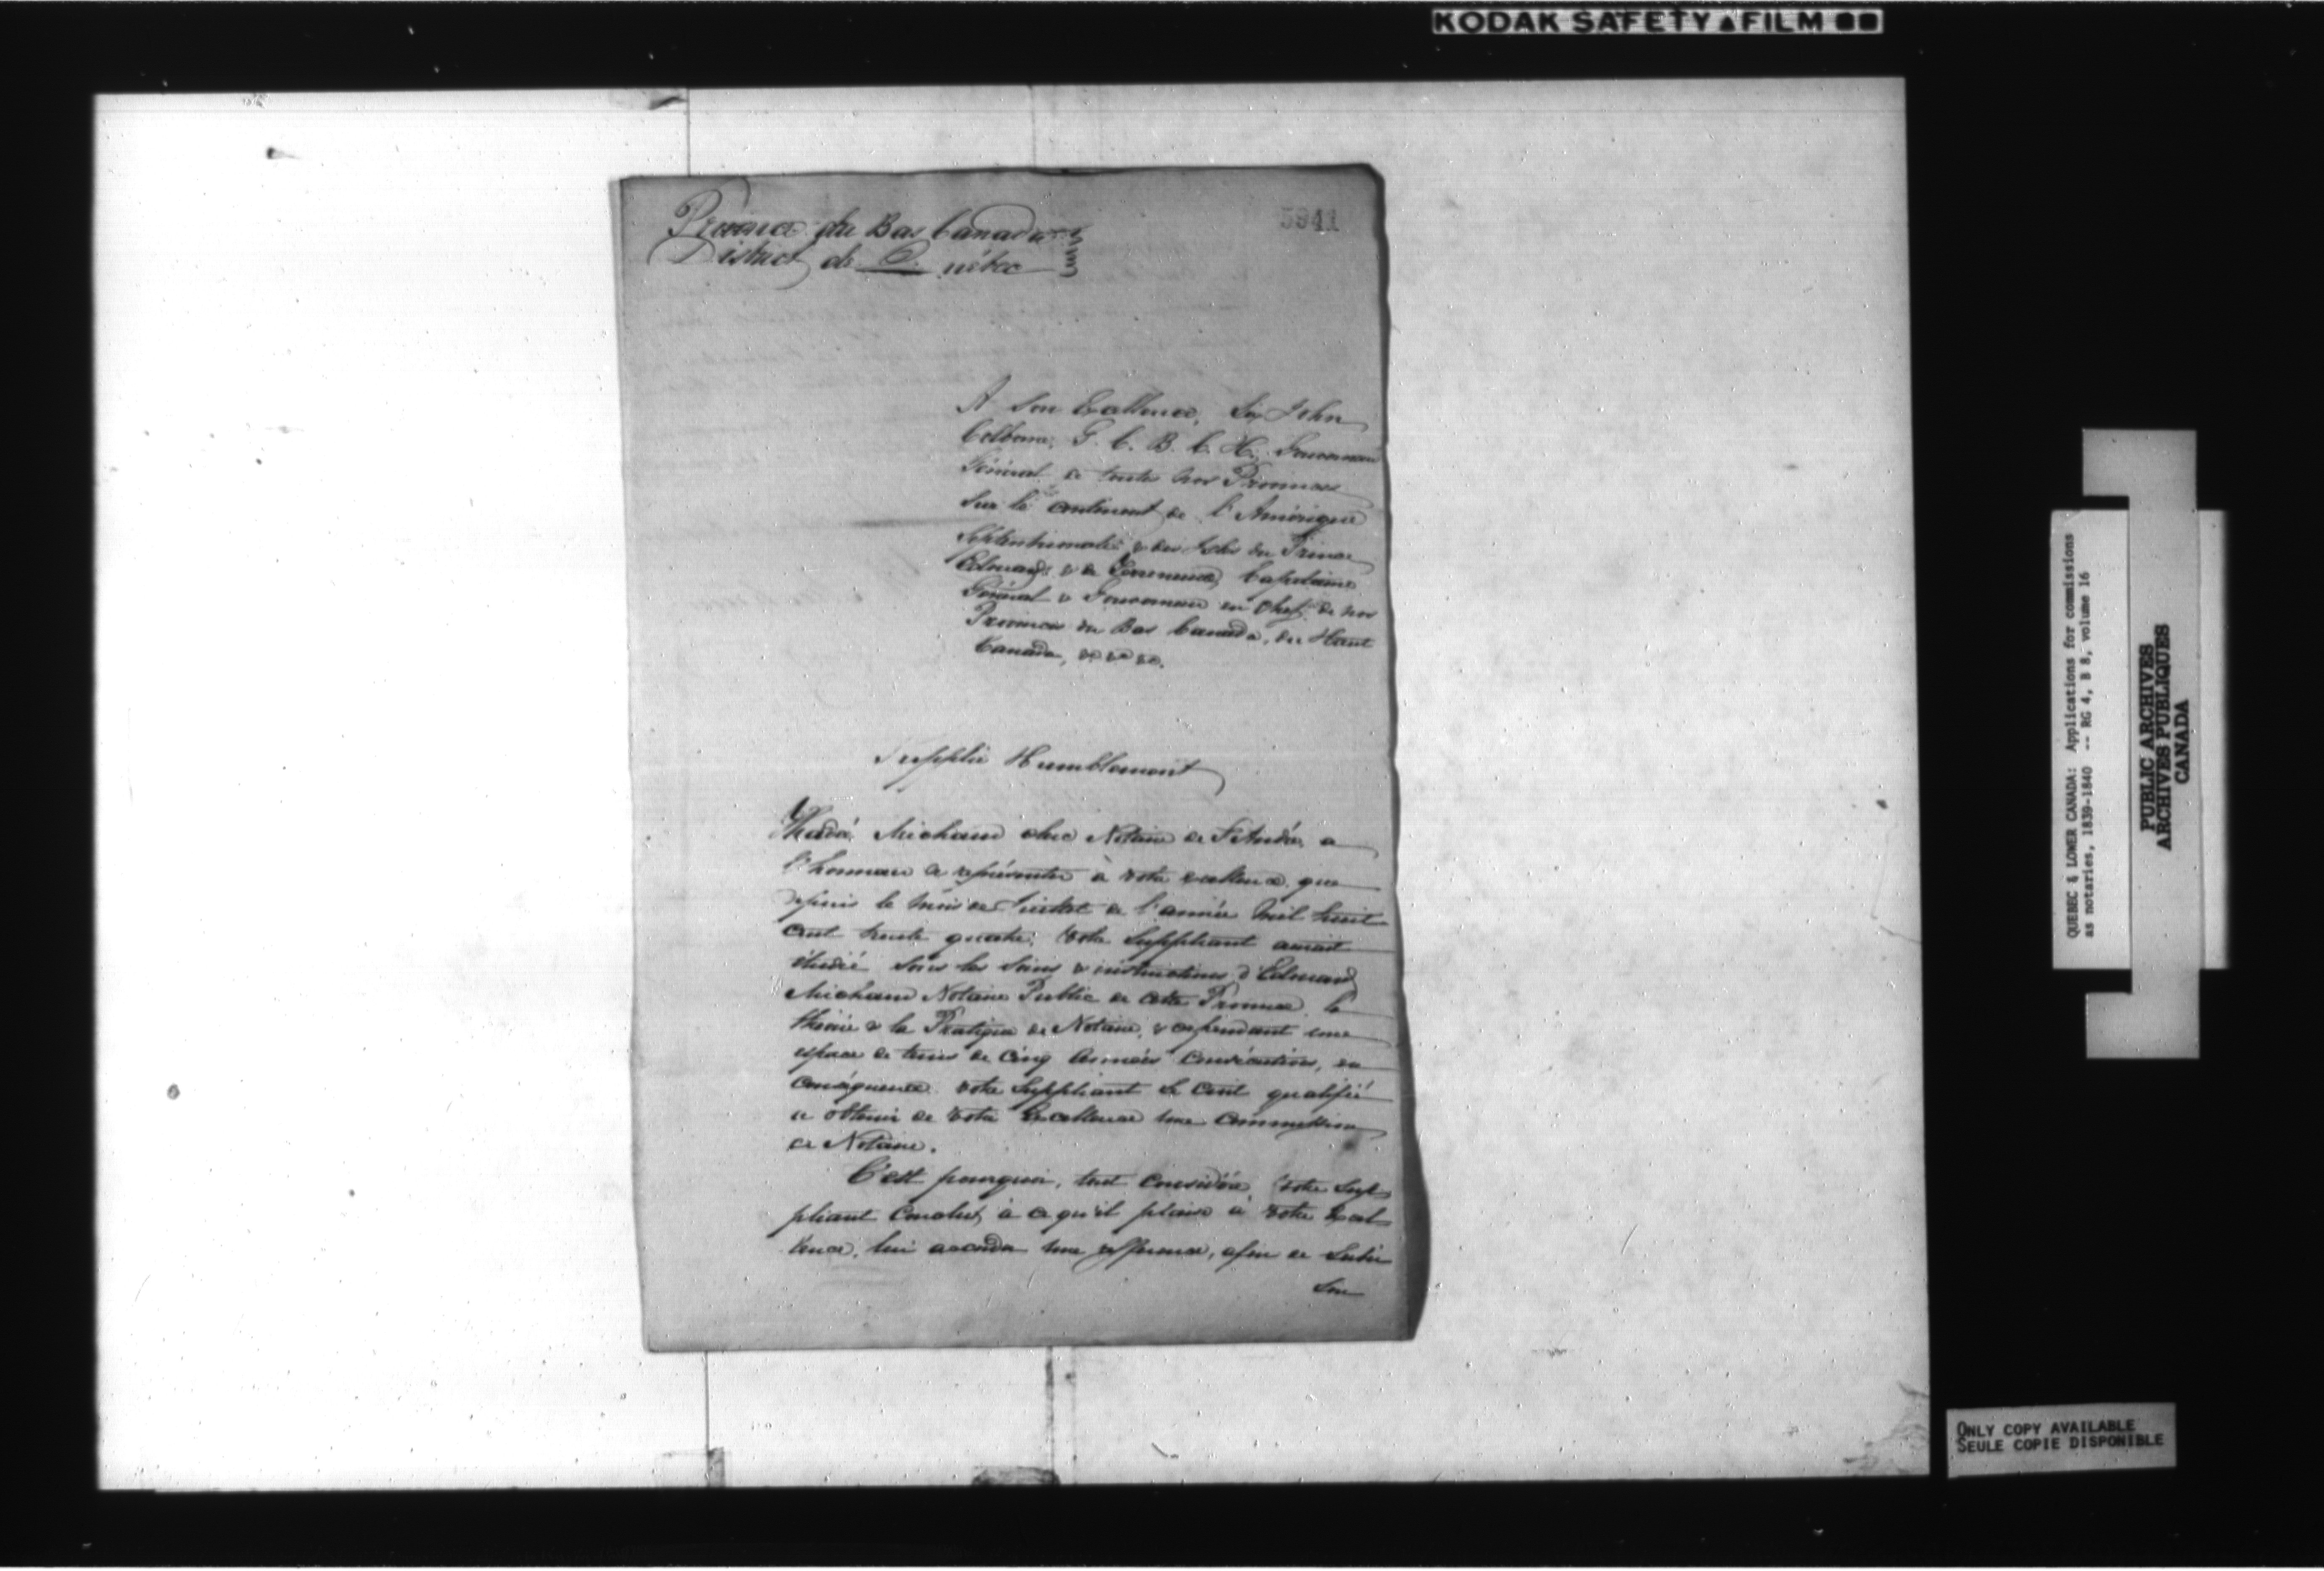 KODAK SAFETY FILM
5941
Province du Bas Canada
District de Québec
A Son Excellence, Sir John
Colborne, G. C. B. C. H., Gouverneur
Général de toutes nos Provinces
sur le continent de l'Amérique
Septentrionale & des Isles du Prince
Edouard & de Terreneuve, Capitaine
Général & Gouverneur en Chef de nos
Provinces du Bas Canada, du Haut
Canada, &c &c &c.
Supplie Humblement
Michaud clerc Notaire de St André, a
l'honneur de représenter à votre excellence, que
depuis le mois de Juillet de l'année mil huit
cent trente quatre, votre Suppliant aurait
étudié sous les soins & instructions d'Edouard
Michaud Notaire Public de cette Province, la
théorie & la Pratique de Notaire, & cependant une
espace de tems de cinq années consécutives, en
conséquence votre Suppliant se croit qualifié
a obtenir de votre Excellence une commission
de Notaire.
C'est pourquoi, tout considéré, votre Sup-
pliant conclut, à ce qu'il plaise à votre Excel-
lence, lui accorder une référence, afin de subir
son
QUEBEC & LOWER CANADA: Applications for commissions
as notaries, 1839-1840 -- RG 4, B 8, volume 16
PUBLIC ARCHIVES
ARCHIVES PUBLIQUES
CANADA
ONLY COPY AVAILABLE
SEULE COPIE DISPONIBLE